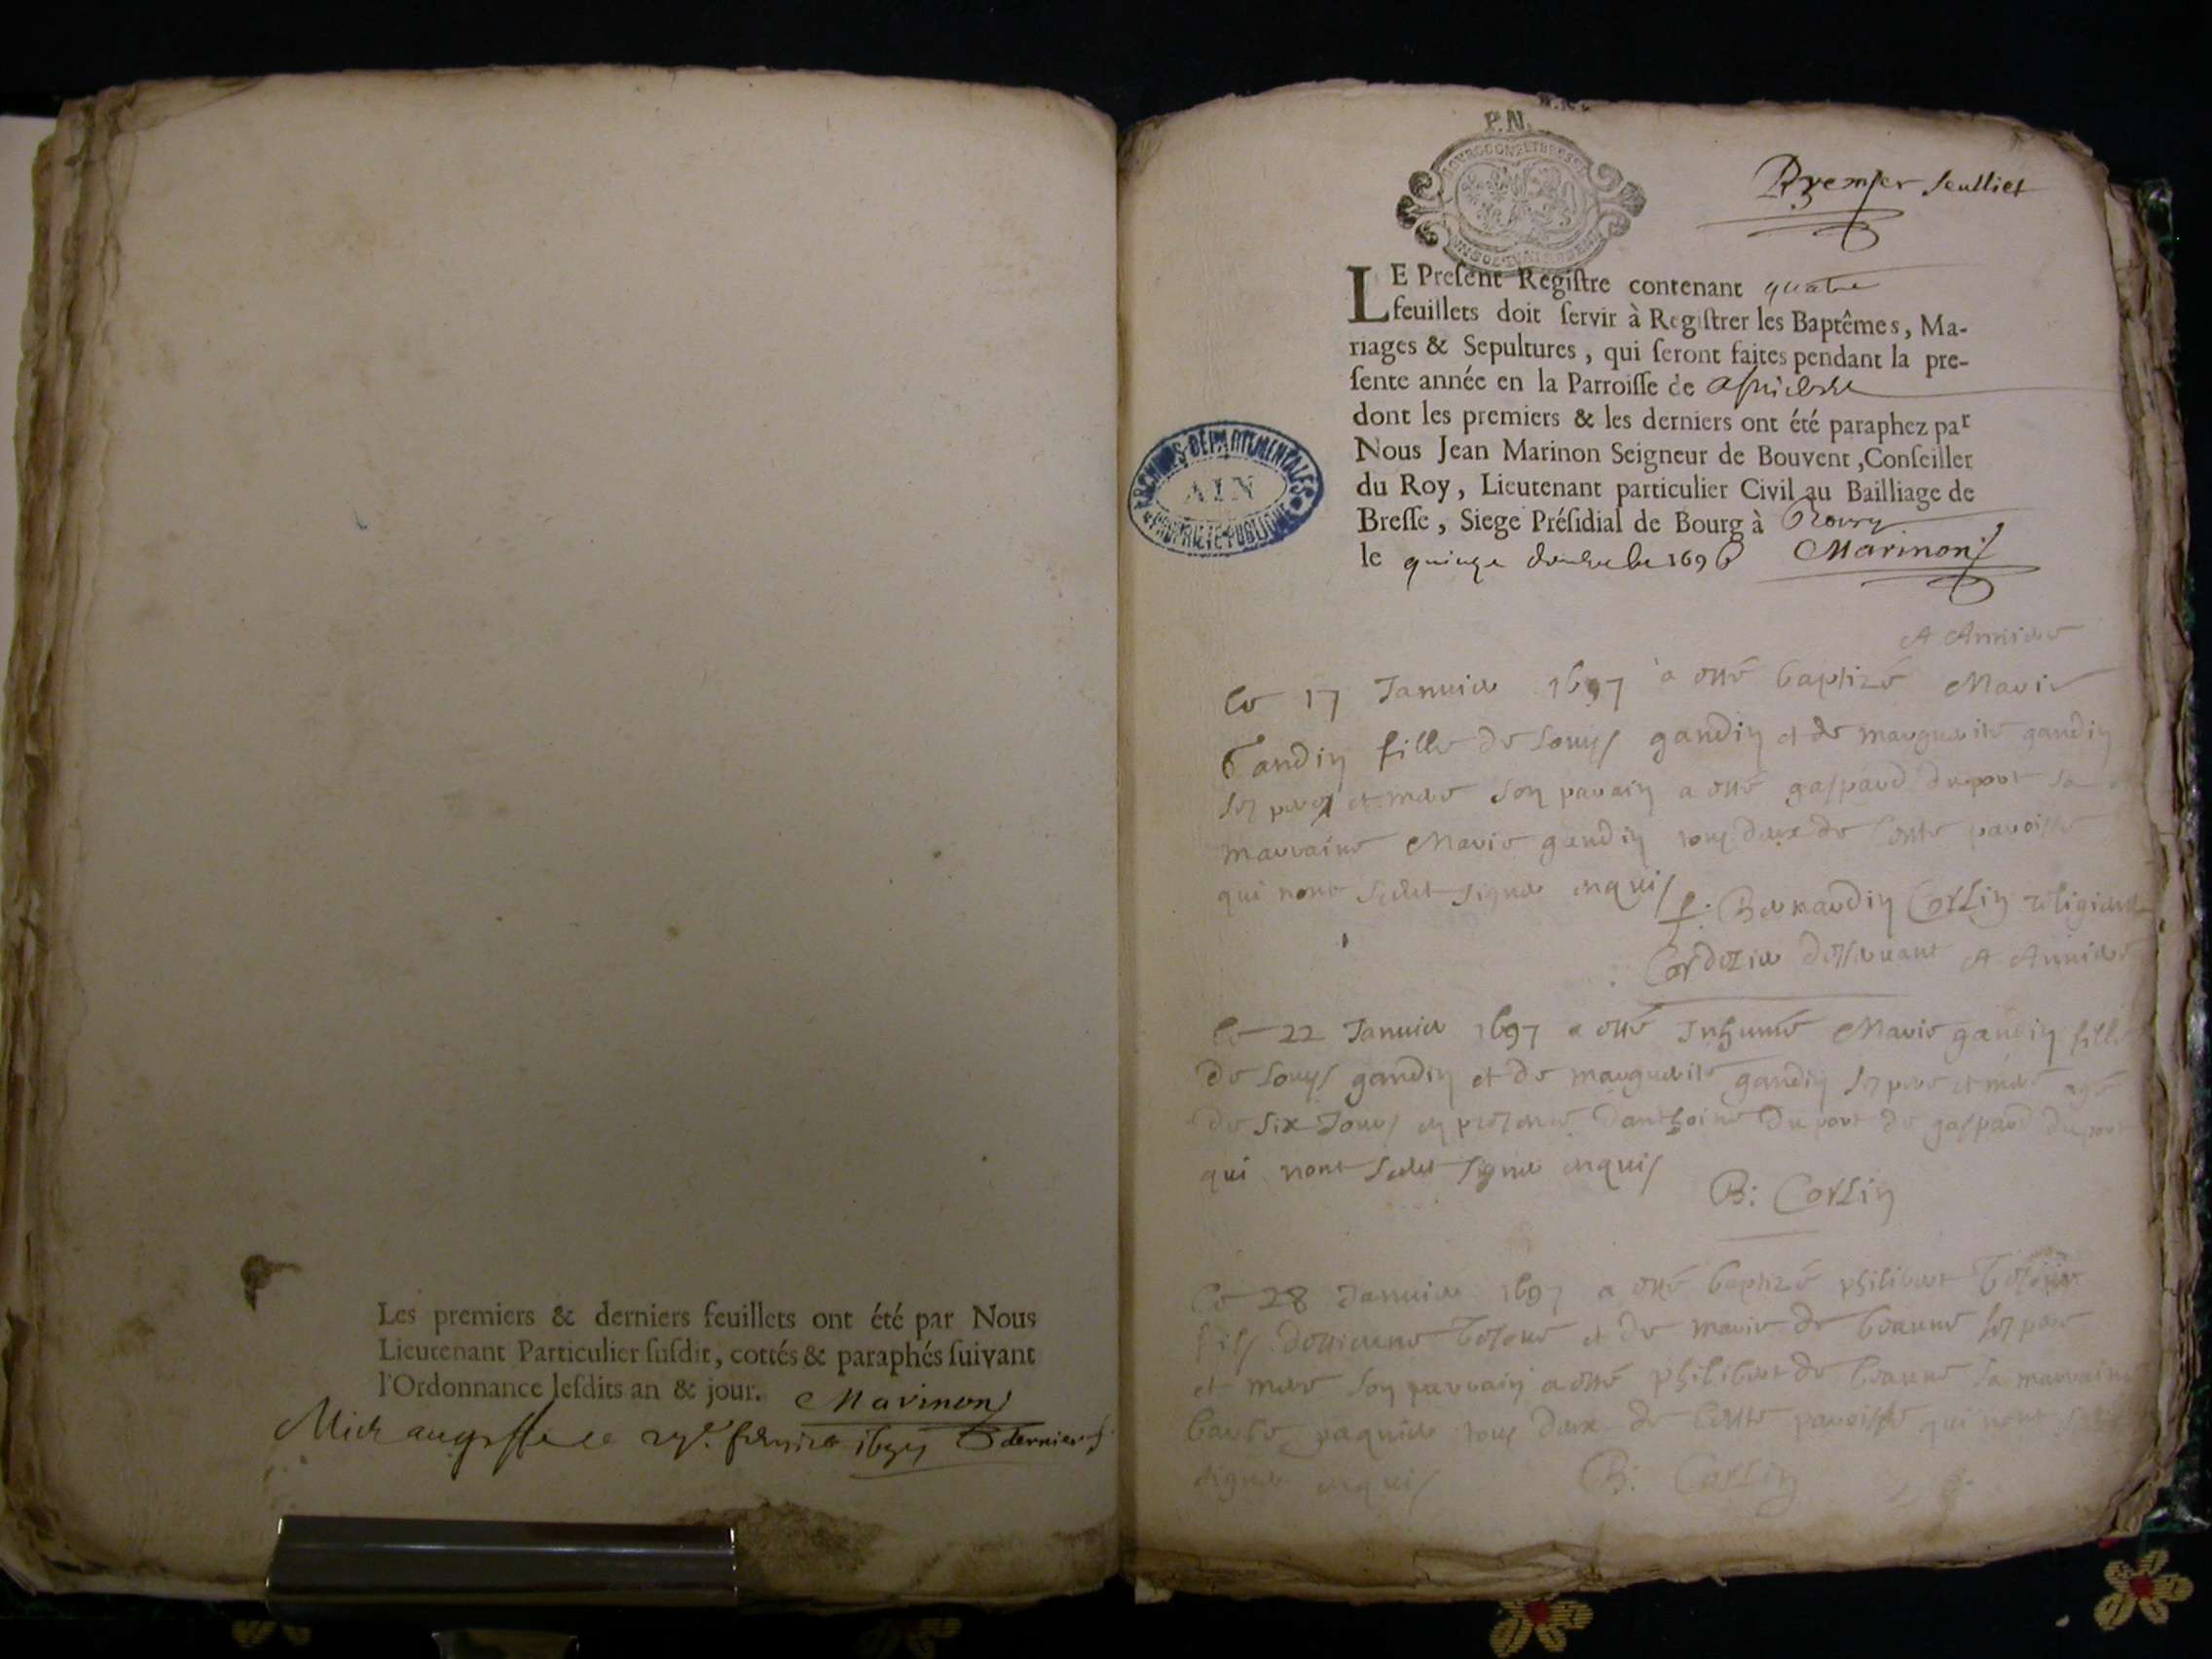 Les premiers & derniers feuillets ont été par Nous
Lieutenant Particulier ſuſdit, cottés & paraphés ſuivant
l'Ordonnance leſdits an & jour. Marinon
dernier f
P.N.
Premier feulliet
LE Preſent Regiſtre contenant quatre
feuillets doit ſervir à Regiſtrer les Baptêmes, Ma-
riages & Sepultures, qui ſeront faites pendant la pre-
ſente année en la Parroiſſe de
dont les premiers & les derniers ont été paraphez par
Nous Jean Marinon Seigneur de Bouvent, Conſeiller
du Roy, Lieutenant particulier Civil au Bailliage de
Breſſe, Siege Préſidial de Bourg à Bourg
le quinze 1696 Marinon
ARCHIVES DEPARTEMENTALES
AIN
PROPRIETE PUBLIQUE
A Asnieres
Le 17 Januier 1697 a esté baptizé Marie
Gandin fille de Louys gandin et de marguerite gandin
ses pere et mere son parain a esté gaspard dupont sa
marraine Marie gandin tous deux de cette paroisse
qui nont sceut signer enquis
f. Bernardin Corlin religieux
Cordelier desseruant A Asnieres
Le 22 Januier 1697 a esté Inhumé Marie gandin fille
de Louys gandin et de marguerite gandin ses pere et mere agé
de six Jours en presence danthoine Dupont de gaspard dupont
qui nont sceut signer enquis
B: Corlin
Le 28 Januier 1697 a esté baptizé philibert
fils et de marie de ses pere
et mere son parrain a esté philibert de sa marraine
tous deux de cette paroisse qui nont sceut
signer enquis B: Corlin